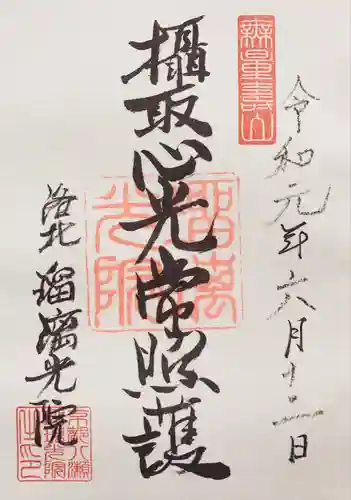 無量壽山
令和元年六月十二日
攝取心光常照護
瑠璃光院
洛北 瑠璃光院